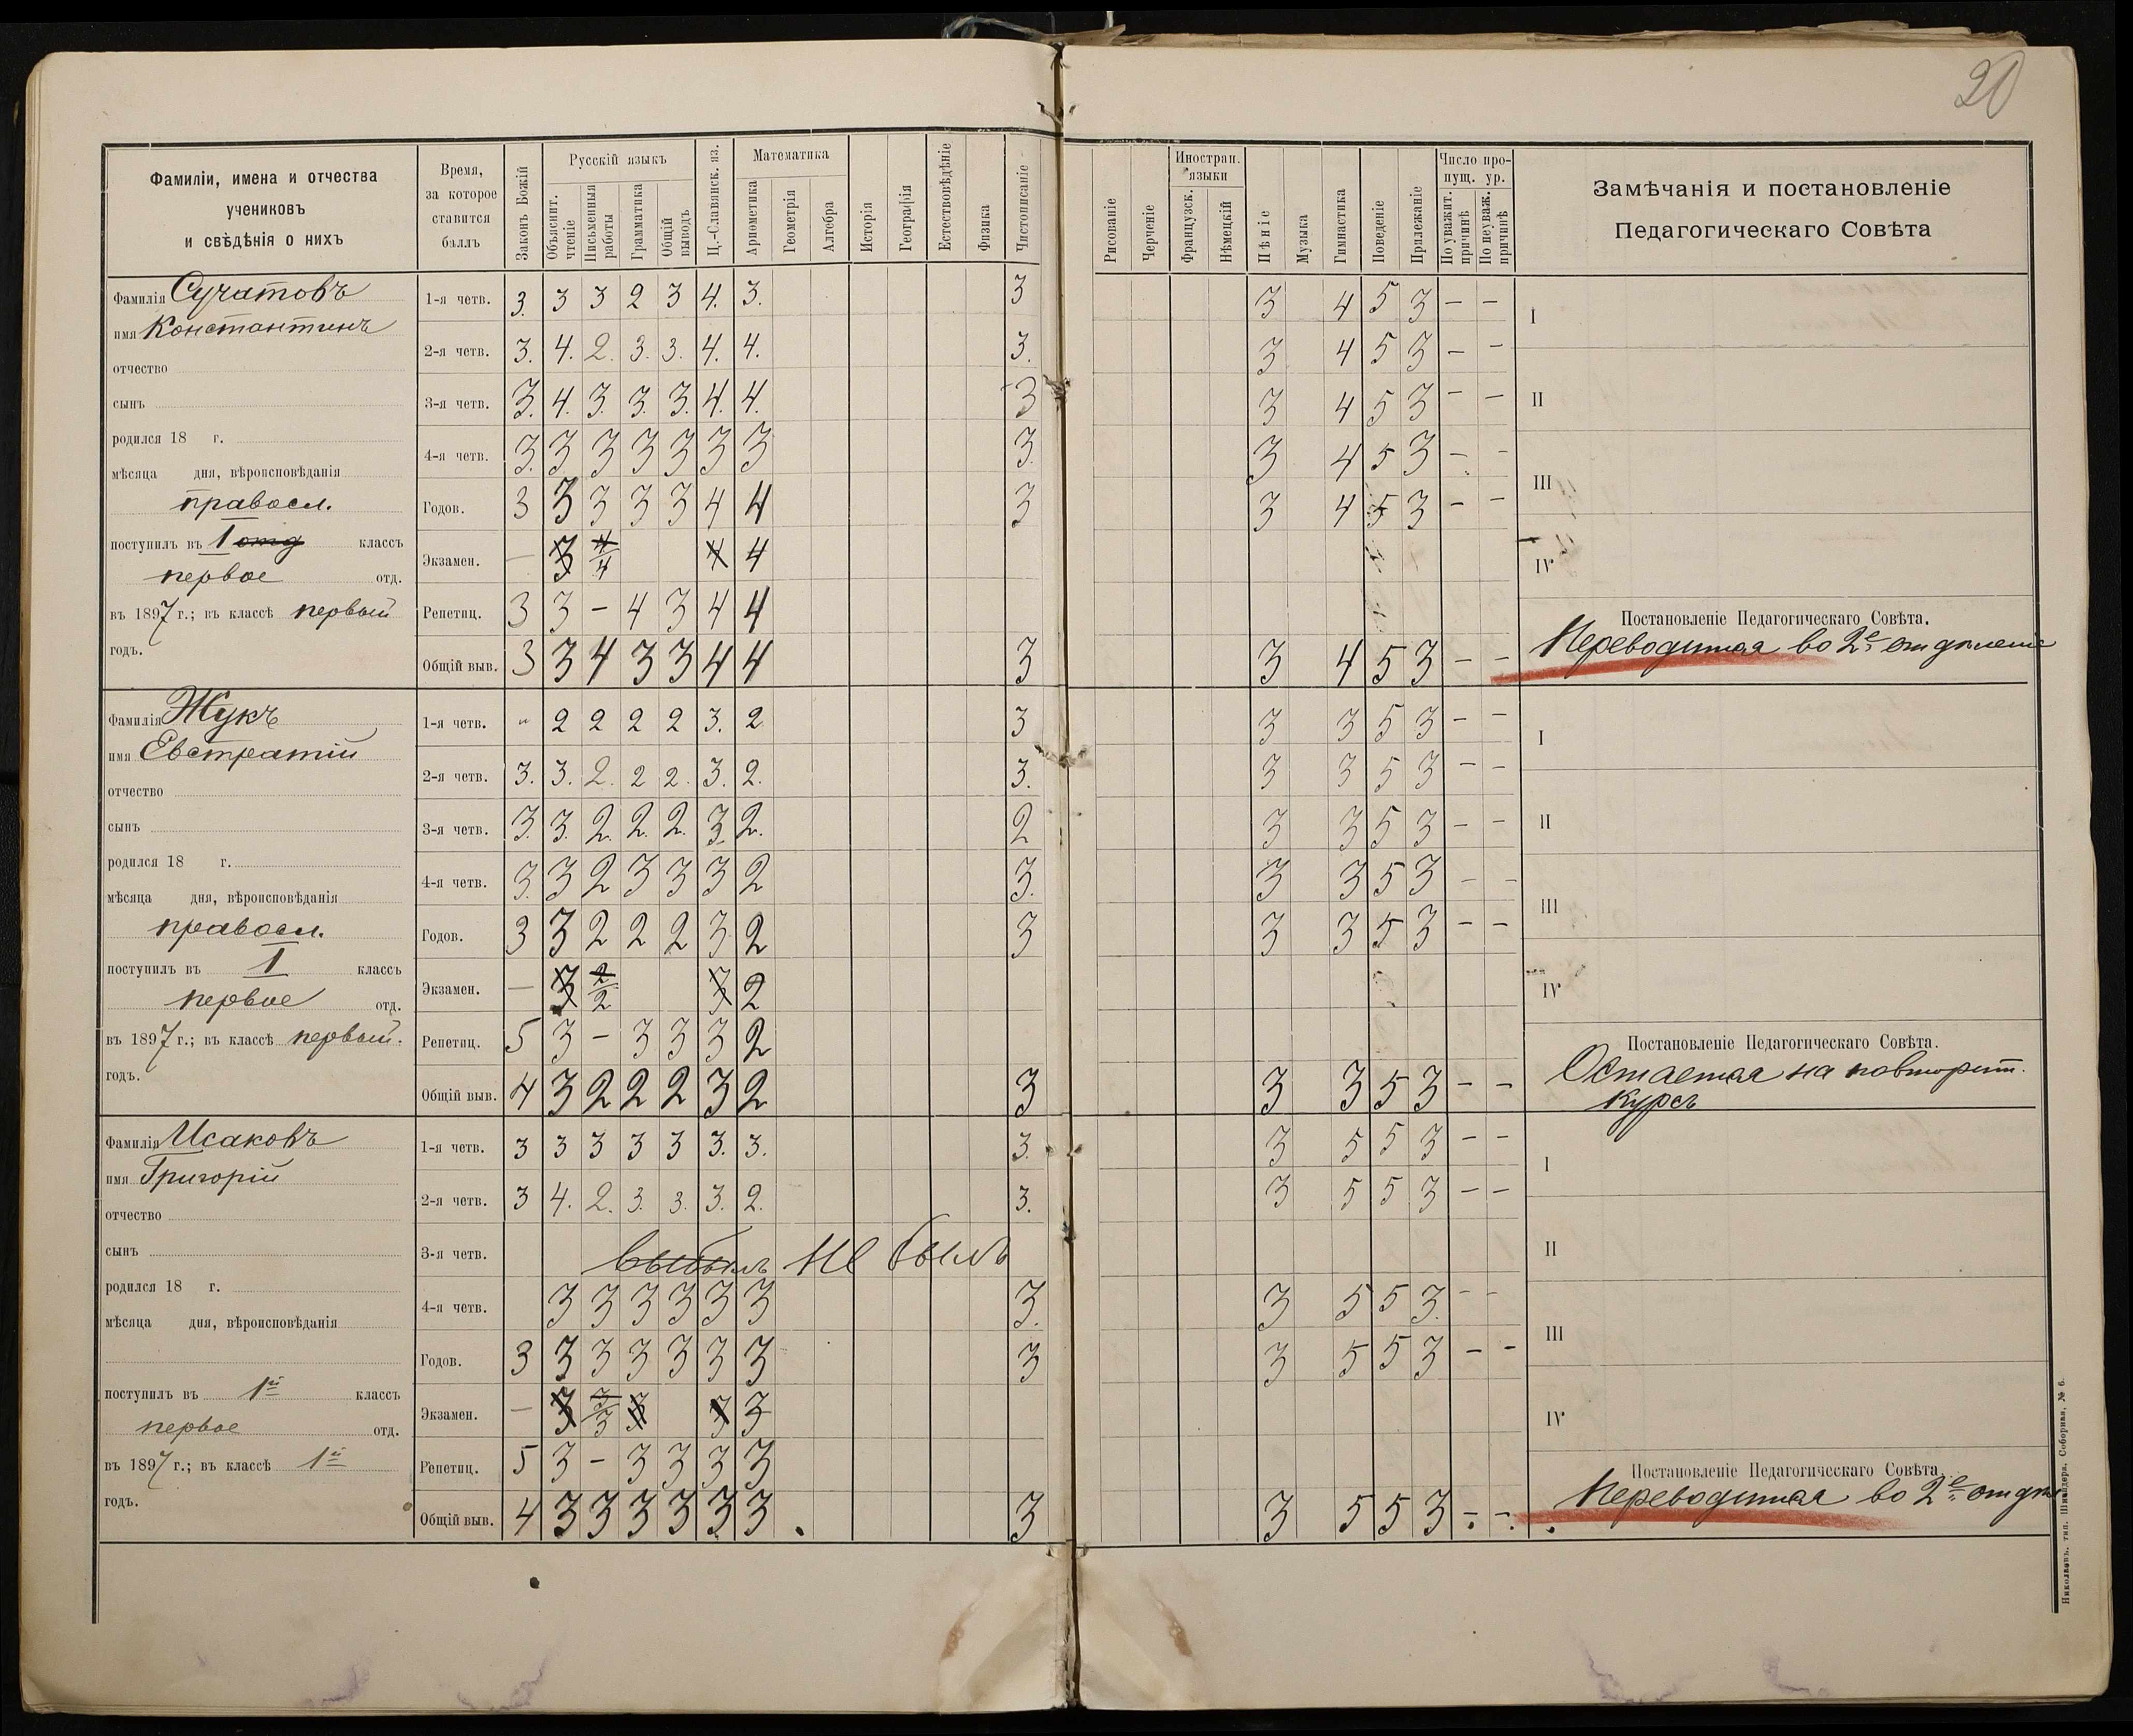 20
Фамиліи, имена и отчества
учениковъ
и свѣдѣнія о нихъ
Время,
за которое
ставится
баллъ
Законъ Божій
Русскій языкъ
Объяснит. чтеніе
Письменныя работы
Грамматика
Общій выводъ
Ц.-Славянск. яз.
Математика
Ариѳметика
Геометрія
Алгебра
Исторія
Географія
Естествовѣдѣніе
Физика
Чистописаніе
Рисованіе
Черченіе
Иностран. языки
Французск.
Нѣмецкій
Пѣніе
Музыка
Гимнастика
Поведеніе
Прилежаніе
Число пропущ. ур.
По уважит. причинѣ
По неуваж. причинѣ
Замѣчанія и постановленіе
Педагогическаго Совѣта
Фамилія Сучатовъ
имя Константинъ
отчество
сынъ
родился 18 г.
мѣсяца дня, вѣроисповѣданія
правосл.
поступилъ въ 1 отд классъ
первое отд.
въ 1897 г.; въ классѣ первый
годъ.
1-я четв. 3. 3 3 2 3 4. 3. 3 3 4 5 3 — —
2-я четв. 3. 4. 2. 3. 3. 4. 4. 3. 3 4 5 3 — —
3-я четв. 3. 4. 3. 3. 3. 4. 4. 3 3 4 5 3 — —
4-я четв. 3. 3 3 3 3 3 3 3. 3 4 5 3 — —
Годов. 3 3 3 3 3 4 4 3 3 4 5 3 — —
Экзамен. — 3 4 4 4 4
Репетиц. 3 3 — 4 3 4 4
Общій выв. 3 3 4 3 3 4 4 3 3 4 5 3 — —
I
II
III
IV
Постановленіе Педагогическаго Совѣта.
Переводится во 2е отдѣленіе
Фамилія Жукъ
имя Евстратій
отчество
сынъ
родился 18 г.
мѣсяца дня, вѣроисповѣданія
правосл.
поступилъ въ I классъ
первое отд.
въ 1897 г.; въ классѣ первый.
годъ.
1-я четв. „ 2 2 2 2 3. 2 3 3 3 5 3 — —
2-я четв. 3. 3. 2. 2 2. 3. 2. 3. 3 3 5 3 — —
3-я четв. 3. 3. 2. 2. 2. 3. 2. 2 3 3 5 3 — —
4-я четв. 3. 3 2 3 3 3 2 3. 3 3 5 3 — —
Годов. 3 3 2 2 2 3 2 3 3 3 5 3 — —
Экзамен. — 3 2 2 3 2
Репетиц. 5 3 — 3 3 3 2
Общій выв. 4 3 2 2 2 3 2 3 3 3 5 3 — —
I
II
III
IV
Постановленіе Педагогическаго Совѣта.
Остается на повторит.
курсъ
Фамилія Исаковъ
имя Григорій
отчество
сынъ
родился 18 г.
мѣсяца дня, вѣроисповѣданія
поступилъ въ 1й классъ
первое отд.
въ 1897 г.; въ классѣ 1й
годъ.
1-я четв. 3 3 3 3 3 3. 3. 3. 3 5 5 3 — —
2-я четв. 3 4. 2. 3. 3. 3. 2. 3. 3 5 5 3 — —
3-я четв. выбылъ не былъ
4-я четв. 3 3 3 3 3 3 3. 3 5 5 3. — —
Годов. 3 3 3 3 3 3 3 3 3 5 5 3 — —
Экзамен. — 3 3 3 3 3 3
Репетиц. 5 3 — 3 3 3 3
Общій выв. 4 3 3 3 3 3. 3 . 3 3 5 5 3 — —
I
II
III
IV
Постановленіе Педагогическаго Совѣта.
Переводится во 2е отдѣл
Николаевъ. тип. Шнейдера. Соборная, № 6